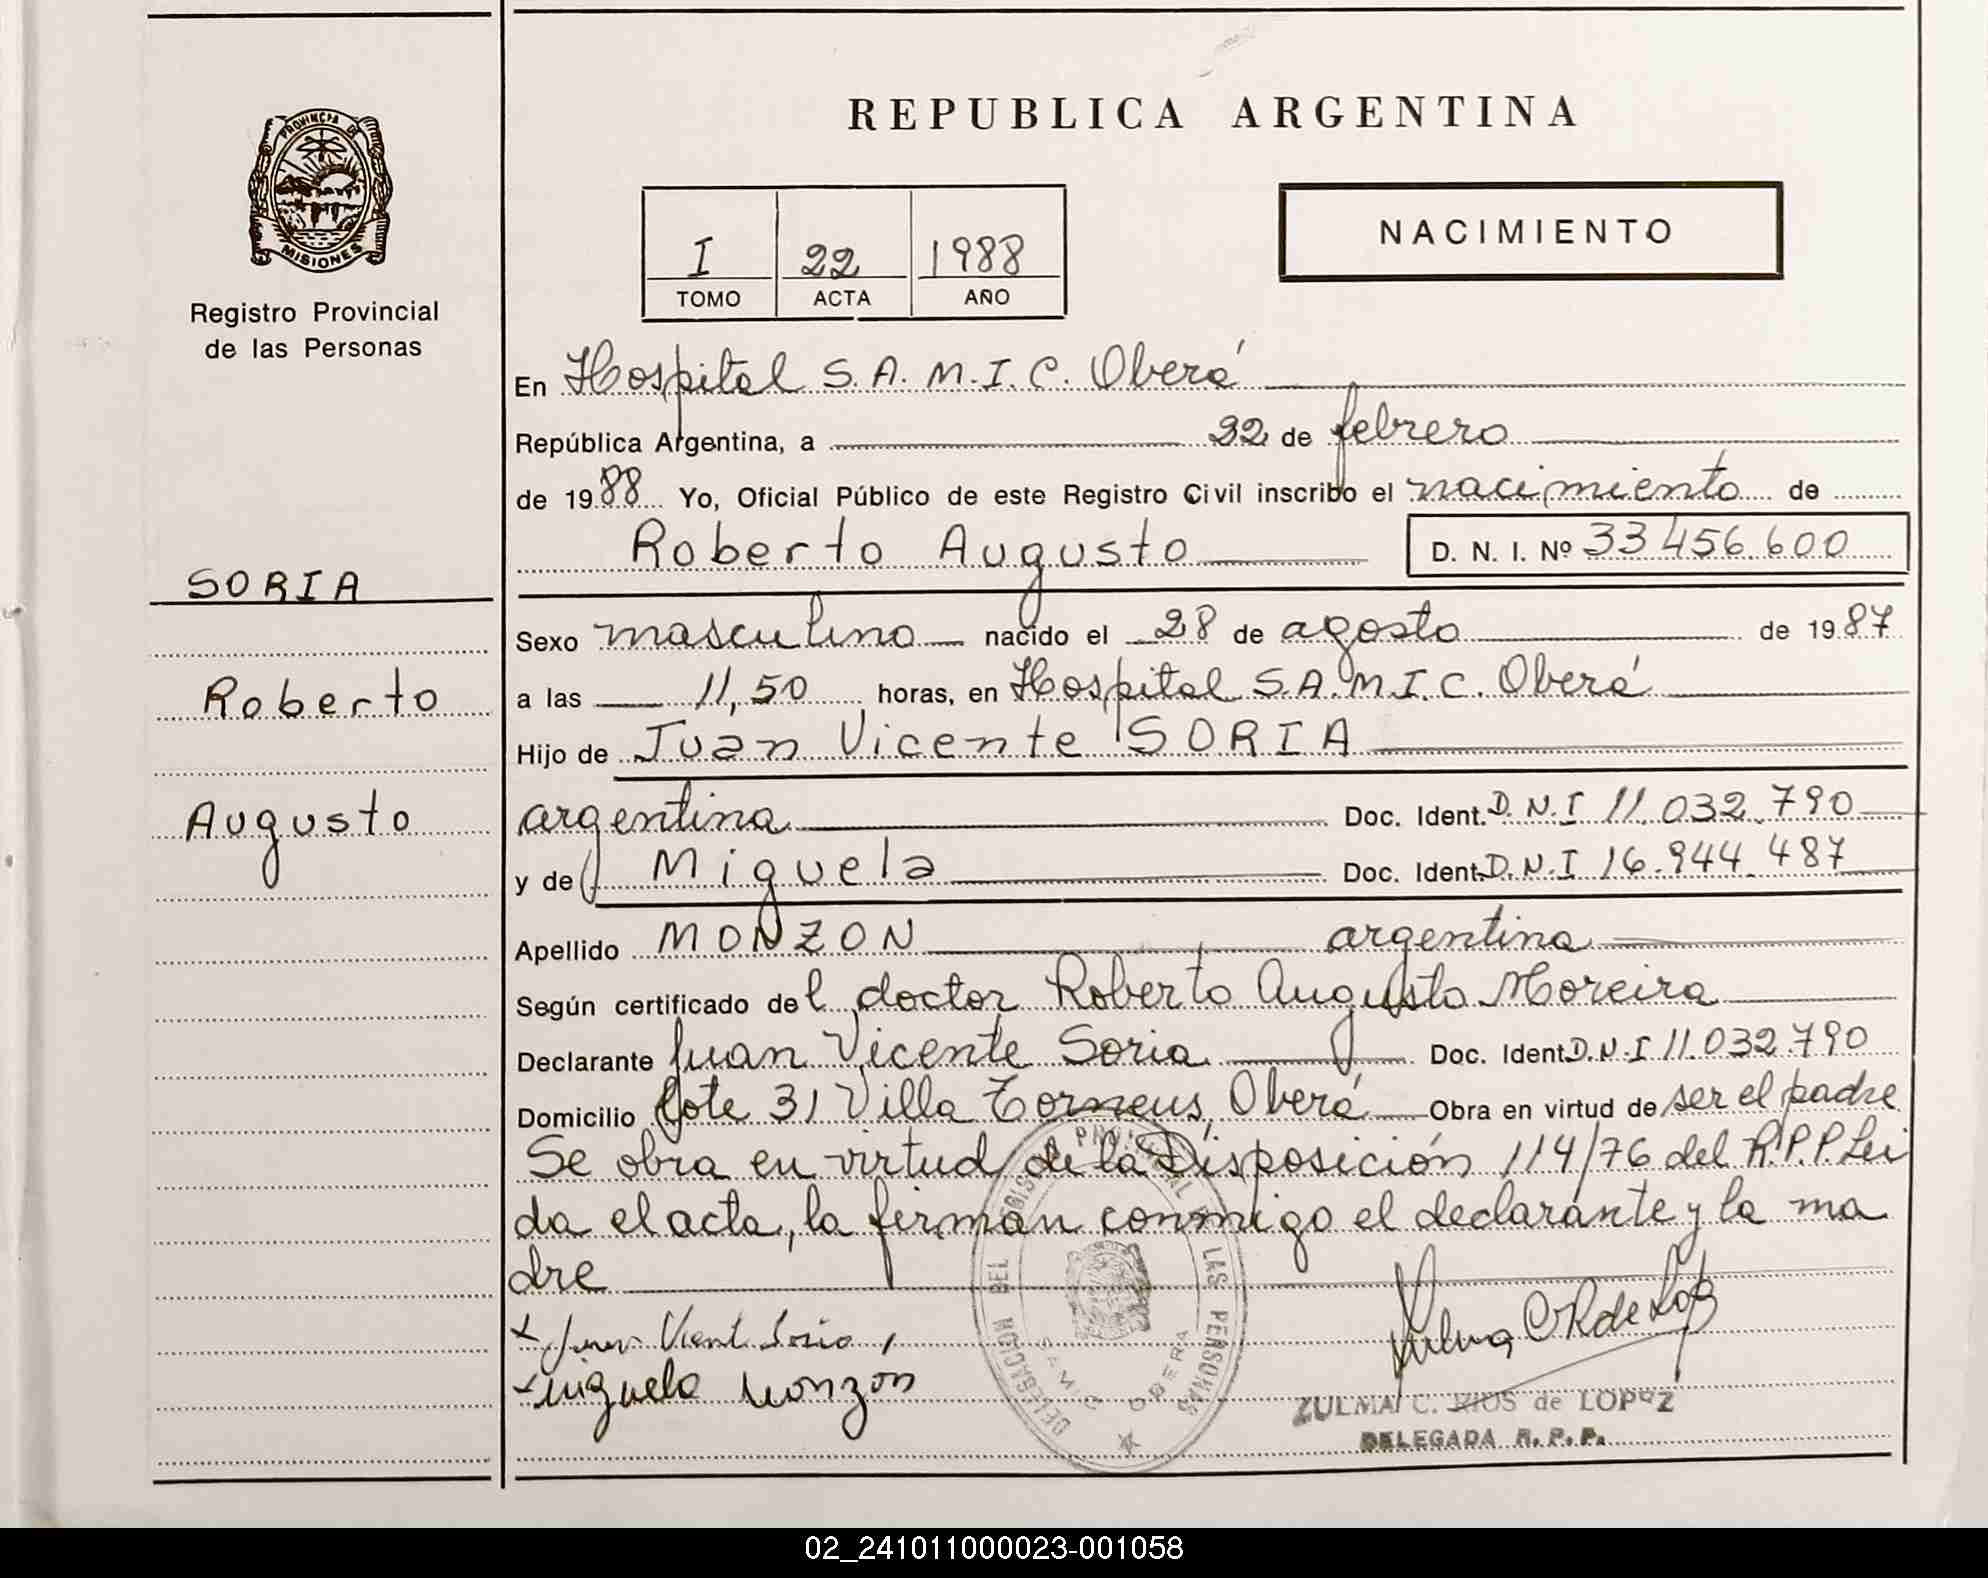 REPUBLICA ARGENTINA
PROVINCIA DE
MISIONES
Registro Provincial
de las Personas
NACIMIENTO
I 22 1988
TOMO ACTA AÑO
En Hospital S.A.M.I.C. Oberá
República Argentina, a 22 de febrero
de 1988 Yo, Oficial Público de este Registro Civil inscribo el nacimiento de
Roberto Augusto D. N. I. Nº 33456.600
SORIA
Roberto
Augusto
Sexo masculino nacido el 28 de agosto de 1987
a las 11,50 horas, en Hospital S.A.M.I.C. Oberá
Hijo de Juan Vicente SORIA
argentina Doc. Ident. D.N.I 11.032.790
y de Miguela Doc. Ident. D.N.I 16.944.487
Apellido MONZON argentina
Según certificado del doctor Roberto Augusto Moreira
Declarante Juan Vicente Soria Doc. Ident. D.N.I 11.032.790
Domicilio Lote 31 Villa Torneus, Oberá Obra en virtud de ser el padre
Se obra en virtud de la Disposición 114/76 del R.P.P. Lei
da el acta, la firman conmigo el declarante y la ma
dre
Miguela Monzon
DELEGACION DEL REGISTRO PROVINCIAL DE LAS PERSONAS
SAMIC OBERA
ZULMA C. RIOS de LOPEZ
DELEGADA R. P. P.
02_241011000023-001058